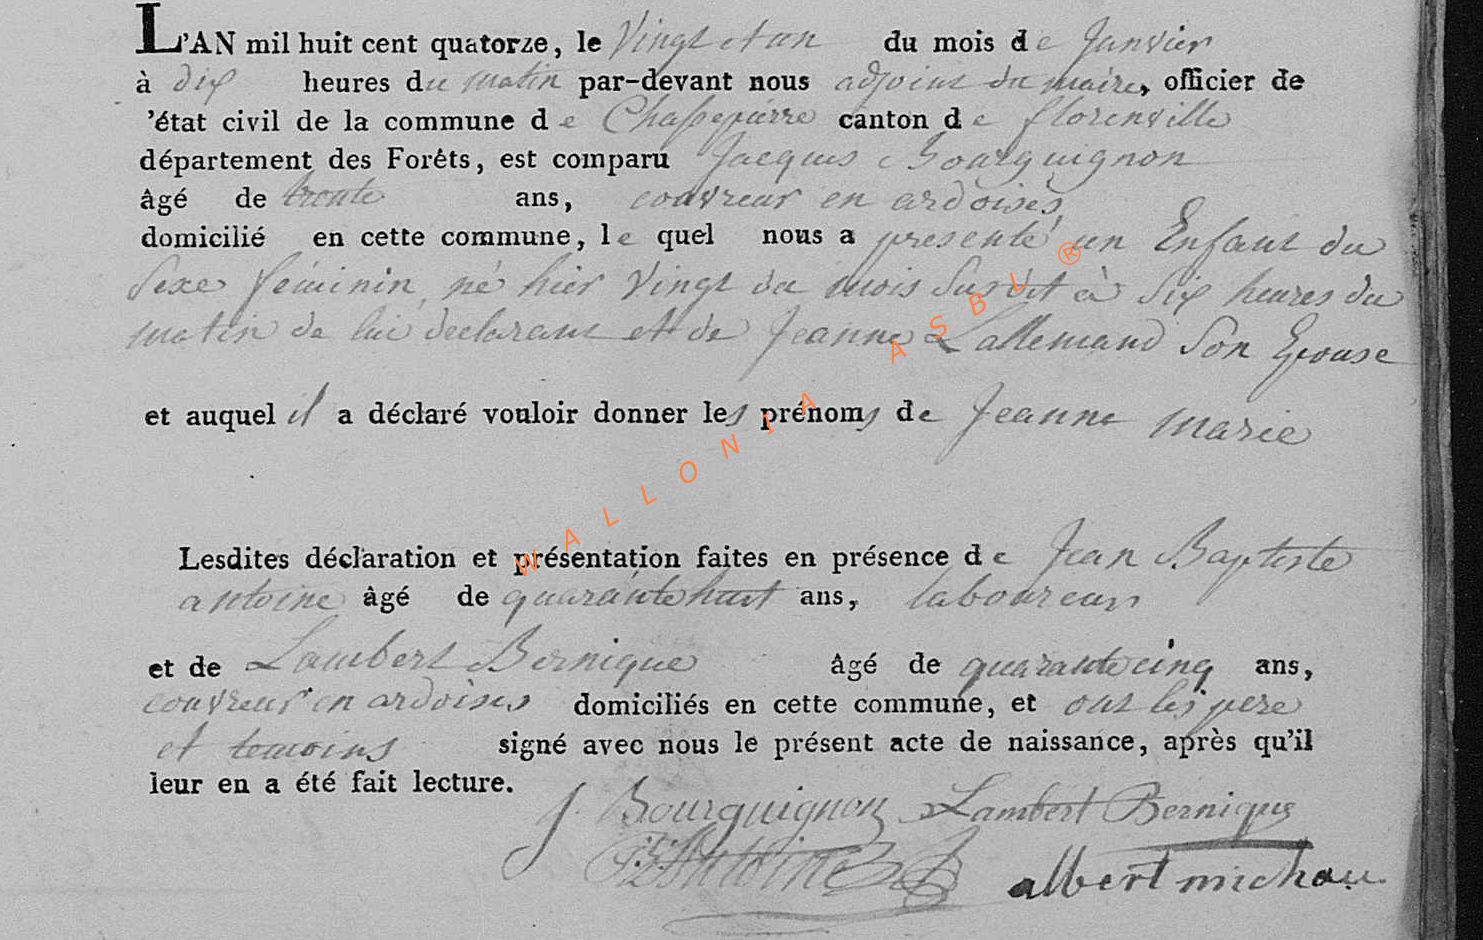 L'AN mil huit cent quatorze, le Vingt et un du mois de Janvier
à dix heures du matin par-devant nous adjoint du maire, officier de
'état civil de la commune de Chassepierre canton de florenville
département des Forêts, est comparu Jacques Bourguignon
âgé de trente ans, couvreur en ardoises,
domicilié en cette commune, le quel nous a presenté un Enfant du
Sexe féminin, né hier Vingt du mois Susdit à Six heures du
matin de lui declarant et de Jeanne Lallemand Son Epouse
et auquel il a déclaré vouloir donner les prénoms de Jeanne marie
Lesdites déclaration et présentation faites en présence de Jean Baptiste
antoine âgé de quarante huit ans, laboureur
et de Lambert Bernique âgé de quarante cinq ans,
couvreur en ardoises domiciliés en cette commune, et ont les pere
et temoins signé avec nous le présent acte de naissance, après qu'il
leur en a été fait lecture.
J. Bourguignon Lambert Bernique
Antoine albert michau
WALLONIA ASBL ®